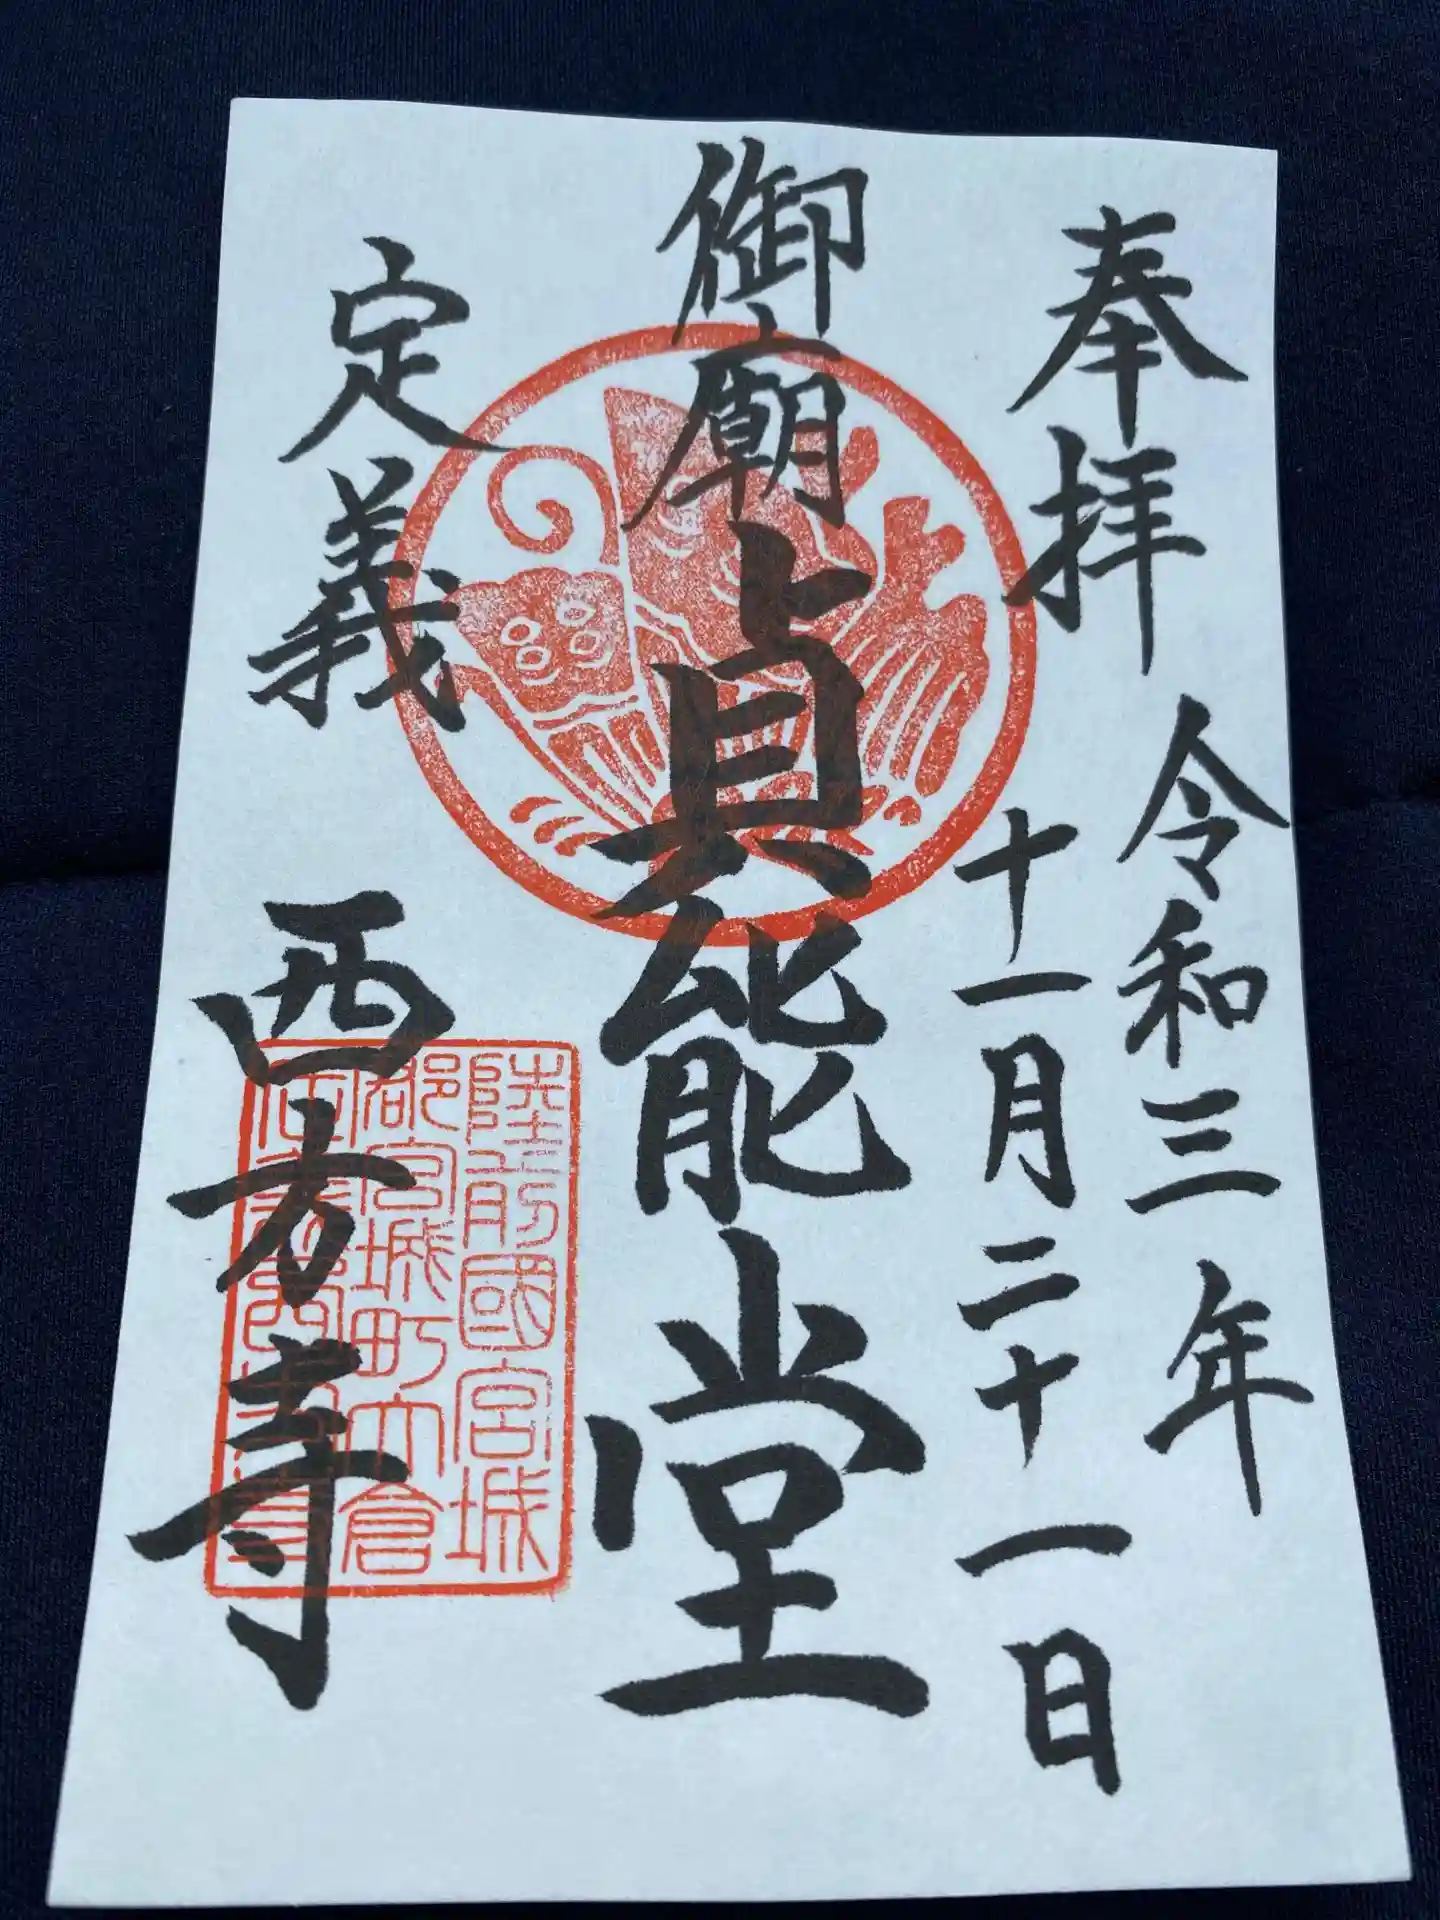 奉拝
令和三年
十一月二十一日
御廟
貞能堂
定義
西方寺
陸前國宮城
郡宮城町大倉
定義西方寺